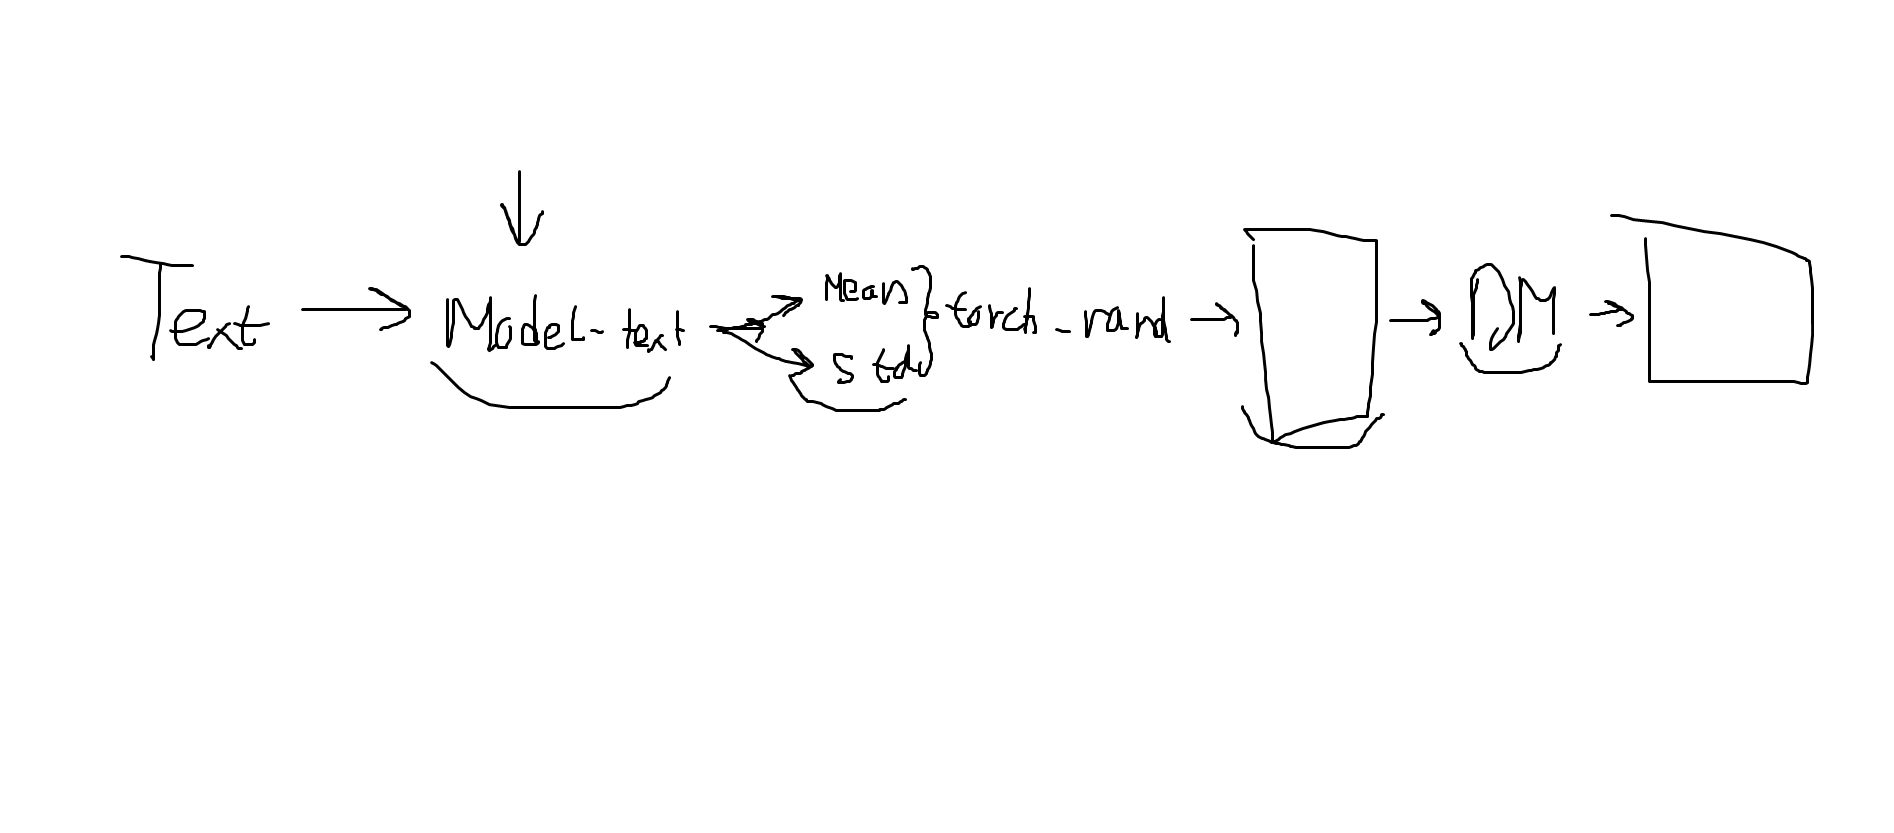 Text
Model-text
Mean
Stdv
torch_rand
DM